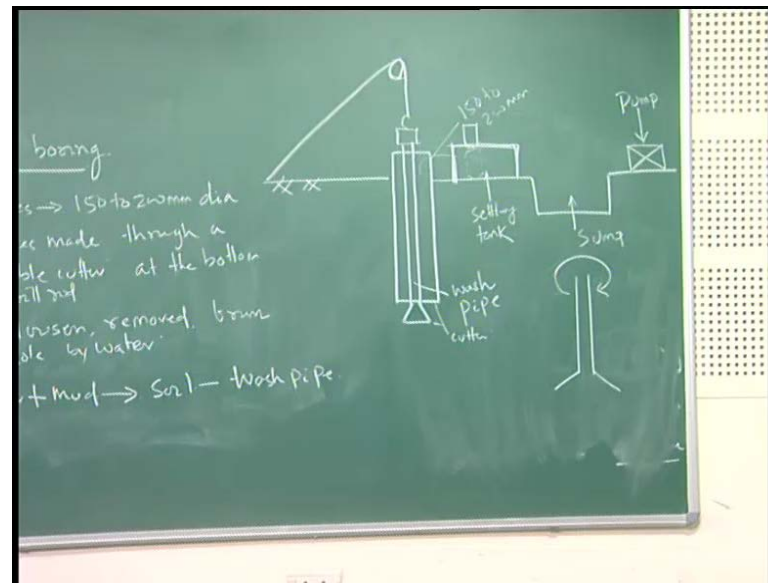 boring.
es → 150 to 200mm dia
es made through a
ble cutter at the bottom
ill rod
lowsen, removed, from
ole by water.
+ mud → Soil - Wash pipe.
150 to
200mm
Pump
Settling
tank
Sump
wash
pipe
cutter